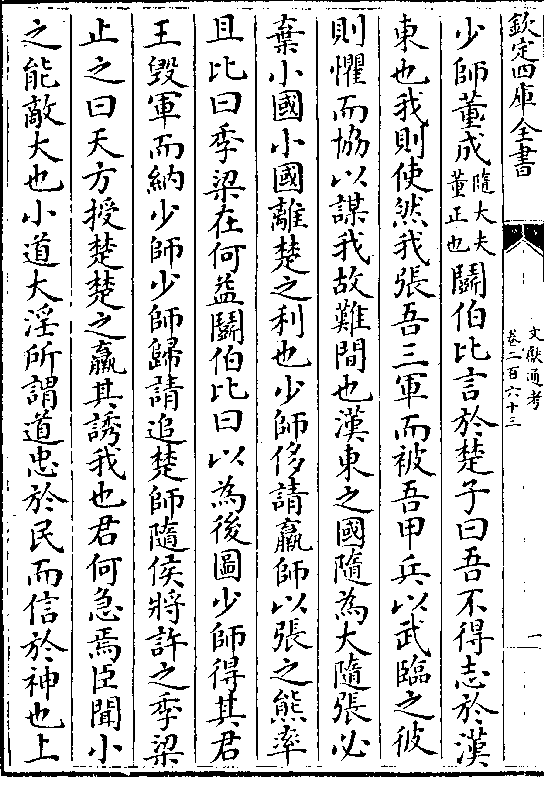 欽定四庫全書
文獻通考
卷二百六十三
一
少師董成隨大夫董正也鬭伯比言於楚子曰吾不得志於漢
東也我則使然我張吾三軍而被吾甲兵以武臨之彼
則懼而協以謀我故難間也漢東之國隨為大隨張必
棄小國小國離楚之利也少師侈請羸師以張之熊率
且比曰季梁在何益鬭伯比曰以為後圖少師得其君
王毀軍而納少師少師歸請追楚師隨侯將許之季梁
止之曰天方授楚楚之羸其誘我也君何急焉臣聞小
之能敵大也小道大淫所謂道忠於民而信於神也上